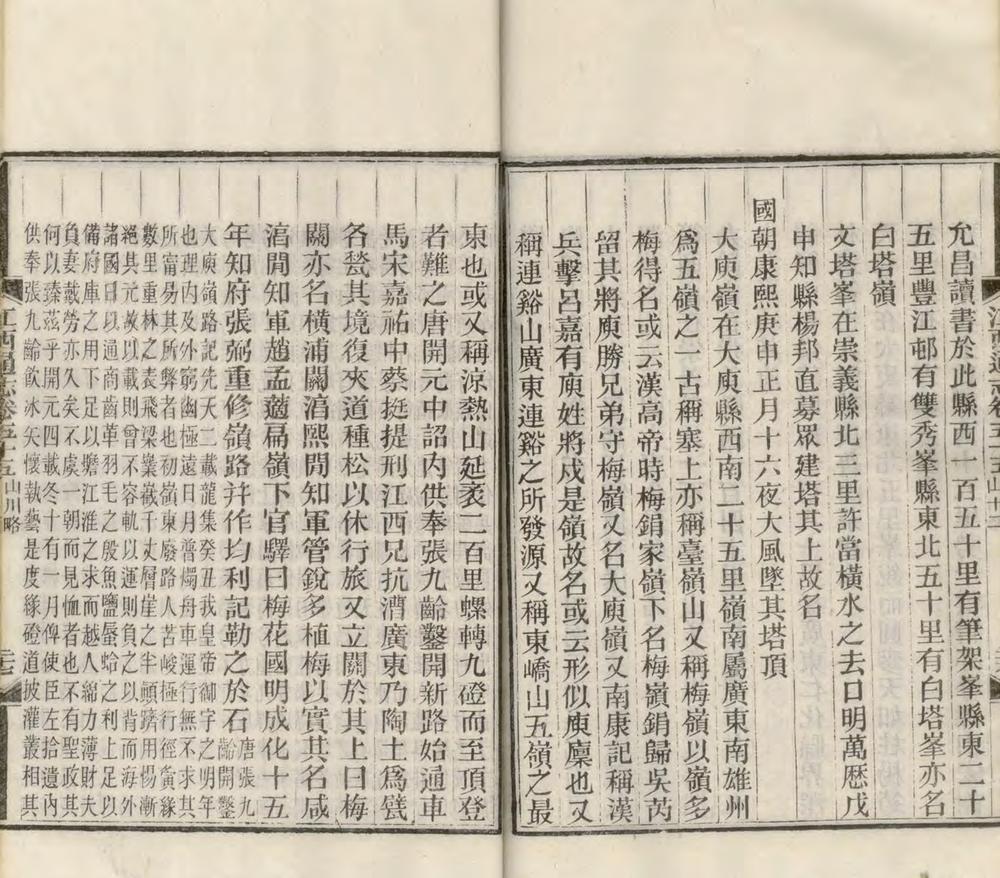 允昌讀書於此縣西一百五十里有筆架峯縣東二十
五里豐江邨有雙秀峯縣東北五十里有白塔峯亦名
白塔嶺
文塔峯在崇義縣北三里許當橫水之去口明萬厯戊
申知縣楊邦直募眾建塔其上故名
國
朝康熙庚申正月十六夜大風墜其塔頂
大庾嶺在大庾縣西南二十五里嶺南屬廣東南雄州
爲五嶺之一古稱塞上亦稱臺嶺山又稱梅嶺以嶺多
梅得名或云漢高帝時梅鋗家嶺下名梅嶺鋗歸吳芮
留其將庾勝兄弟守梅嶺又名大庾嶺又南康記稱漢
兵擊呂嘉有庾姓將戍是嶺故名或云形似庾廩也又
稱連谿山廣東連谿之所發源又稱東嶠山五嶺之最
東也或又稱涼熱山延袤二百里螺轉九磴而至頂登
者難之唐開元中詔內供奉張九齡鑿開新路始通車
馬宋嘉祐中蔡挺提刑江西兄抗漕廣東乃陶土爲甓
各甃其境復夾道種松以休行旅又立關於其上曰梅
關亦名橫浦關淳熙閒知軍管銳多植梅以實其名咸
淳閒知軍趙孟藡扁嶺下官驛曰梅花國明成化十五
年知府張弼重修嶺路幷作均利記勒之於石
唐張九
齡開鑿
大庾嶺路記先天二載龍集癸丑我皇帝御宇之明年
也理內及外窮幽極遠日月普燭舟車運行無不求其
所甯易其所弊者也初嶺東廢路人苦峻極行徑夤緣
數里重林之表飛梁嶪嶻千丈層崖之半顚躋用惕漸
絕其元故以載則曾不容軌以運則負之以背而海外
諸國日以通商齒革羽毛之殷魚鹽蜃蛤之利上足以
備府庫之用下足以贍江淮之求而越人綿力薄財夫
負妻戴勞亦久矣不虞一朝而見恤者也不有聖政其
何以臻茲乎開元四載冬十有一月俾使臣左拾遺內
供奉張九齡飲冰矢懷執藝是度緣磴道披灌叢相其
江西通志卷五十五 山川略